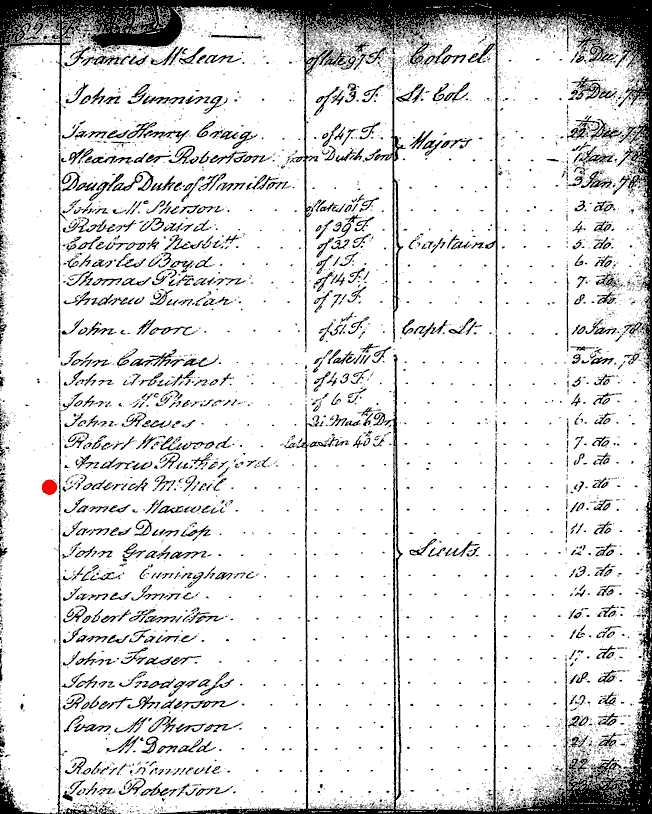 82
Francis McLean of late 97th F. Colonel 16th Dec. 77
John Gunning of 43d F. Lt. Col. 25th Dec. 77
James Henry Craig of 47. F. Majors 22th Dec. 77
Alexander Robertson from Dutch Serv. 1st Jan. 78
Douglas Duke of Hamilton 3d Jan. 78
John McPherson of late 101st F. Captains 3. do
Robert Baird of 39 F. 4. do
Colebrook Nesbitt of 32 F. 5. do
Charles Boyd of 1 F. 6. do
Thomas Pitcairn of 14 F. 7. do
Andrew Dunlap of 71 F. 8. do
John Moore of 51st F. Capt. Lt. 10 Jan. 78
John Carthrae of late 111th F. Lieuts. 3d Jan. 78
John Arbuthnot of 43 F. 5. do
John McPherson of 6 F. 4. do
John Reeves Qr. Masr. 6th Dr. 6. do
Robert Wellwood late in 40 F. 7. do
Andrew Rutherford 8. do
Roderick McNeil 9. do
James Maxwell 10. do
James Dunlop 11. do
John Graham 12. do
Alexr. Cuninghame 13. do
James Imrie 14. do
Robert Hamilton 15. do
James Fairie 16. do
John Fraser 17. do
John Snodgrass 18. do
Robert Anderson 19. do
Evan McPherson 20. do
McDonald 21. do
Robert Kennevie 22. do
John Robertson